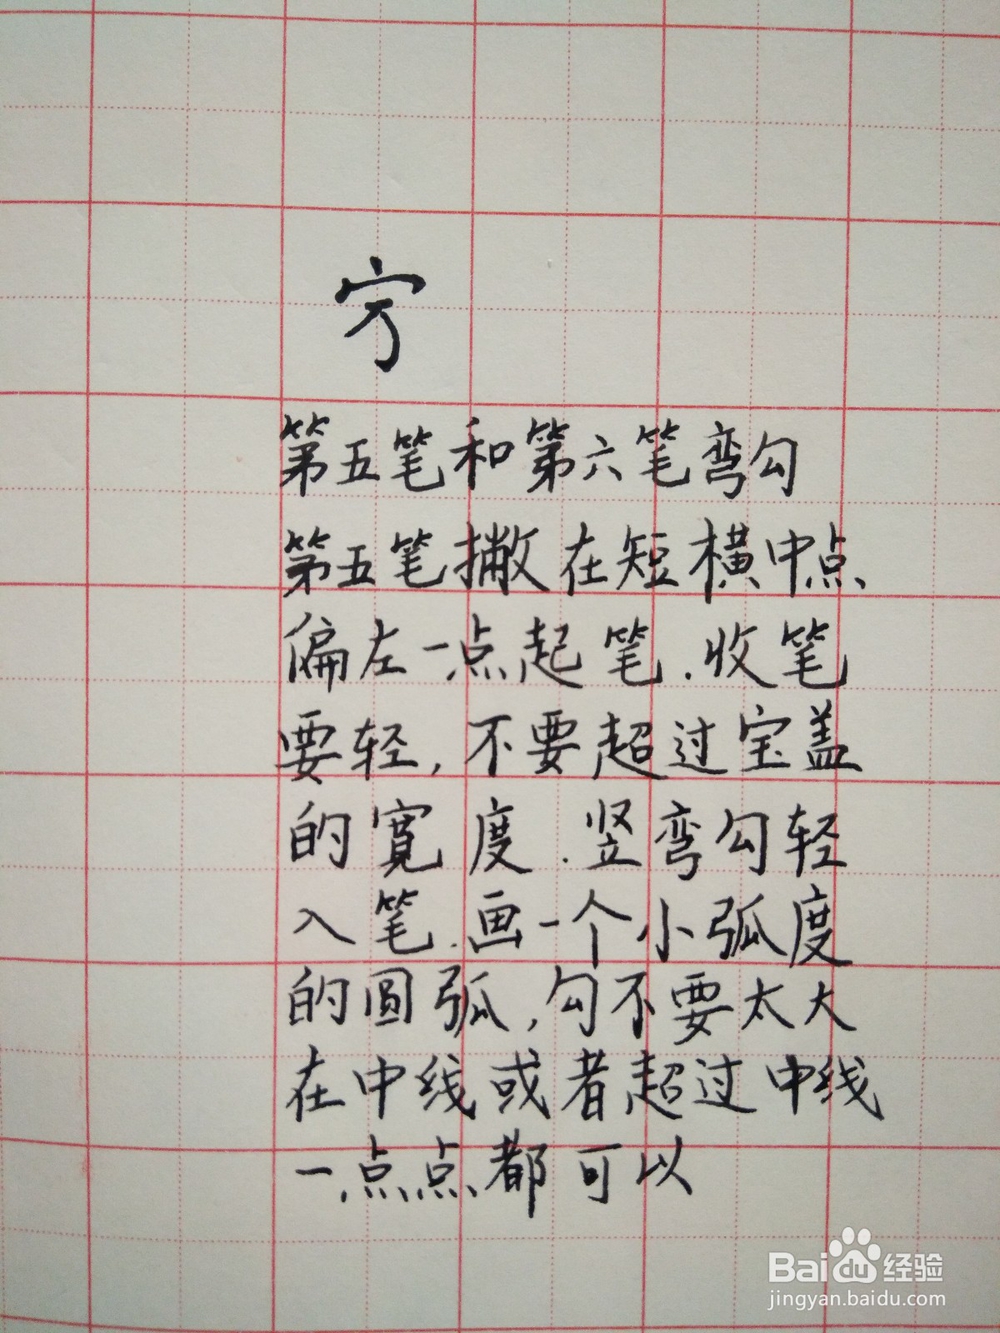 第五笔和第六笔弯勾
第五笔撇在短橫中点
偏左一点起笔.收笔
要轻,不要超过宝盖
的寬度.竖弯勾轻
入笔.画一个小弧度
的圆弧,勾不要太大
在中线或者超过中线
一点点都可以
Baidu经验
jingyan.baidu.com